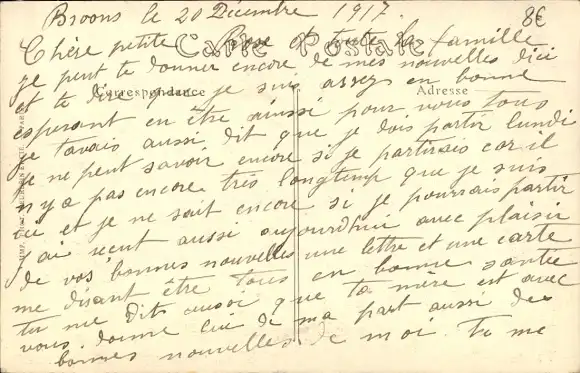 Broons le 20 Décembre 1917.
8€
Carte Postale
Chère petite Rose et toute la famille
Correspondance
Adresse
je peut te donner encore de mes nouvelles d'ici
et te dire que je suis assez en bonne
esperant en être aussi pour vous tous
je tavais aussi dit que je dois partir lundi
je ne peut savoir encore si je partirais car il
n'y a pas encore très longtemp que je suis
ici et je ne sait encore si je pourrais partir
j'ai reçut aussi aujourdhui avec plaisir
de vos bonnes nouvelles une lettre et une carte
me disant être tous en bonne santée
tu me dit aussi que ta mère est avec
vous donne lui de ma part aussi des
bonnes nouvelles de moi Tu me